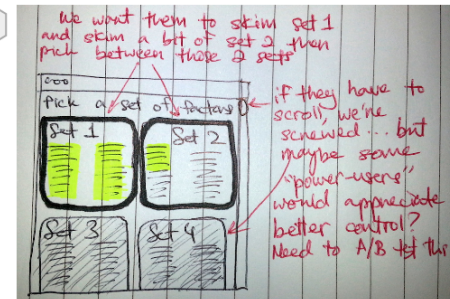 We want them to skim set 1
and skim a bit of set 2 then
pick between those 2 sets
Pick a set of factors
if they have to
scroll, we're
screwed... but
maybe some
"power-users"
would appreciate
better control?
Need to A/B test this
Set 1
Set 2
Set 3
Set 4